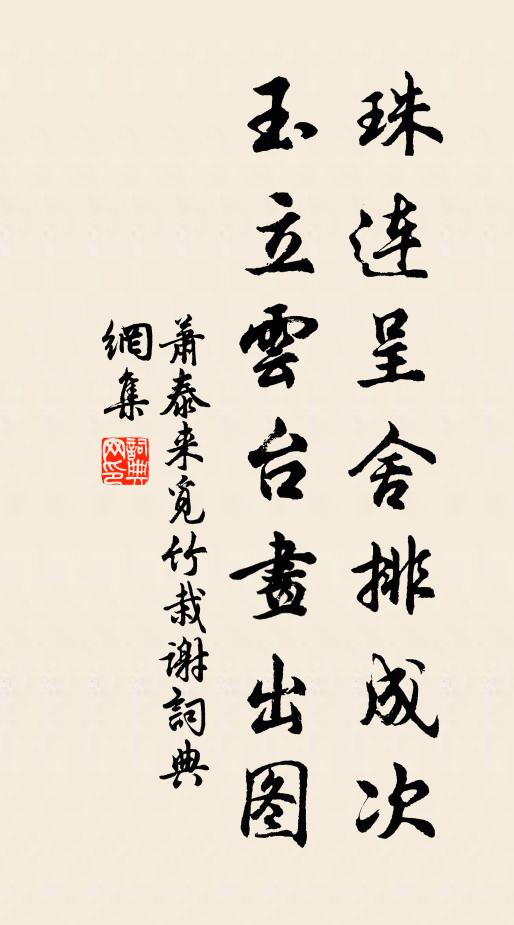 珠连呈舍排成次
玉立雲台畫出图
萧泰来觅竹栽谢詞典
網集
詞典网印